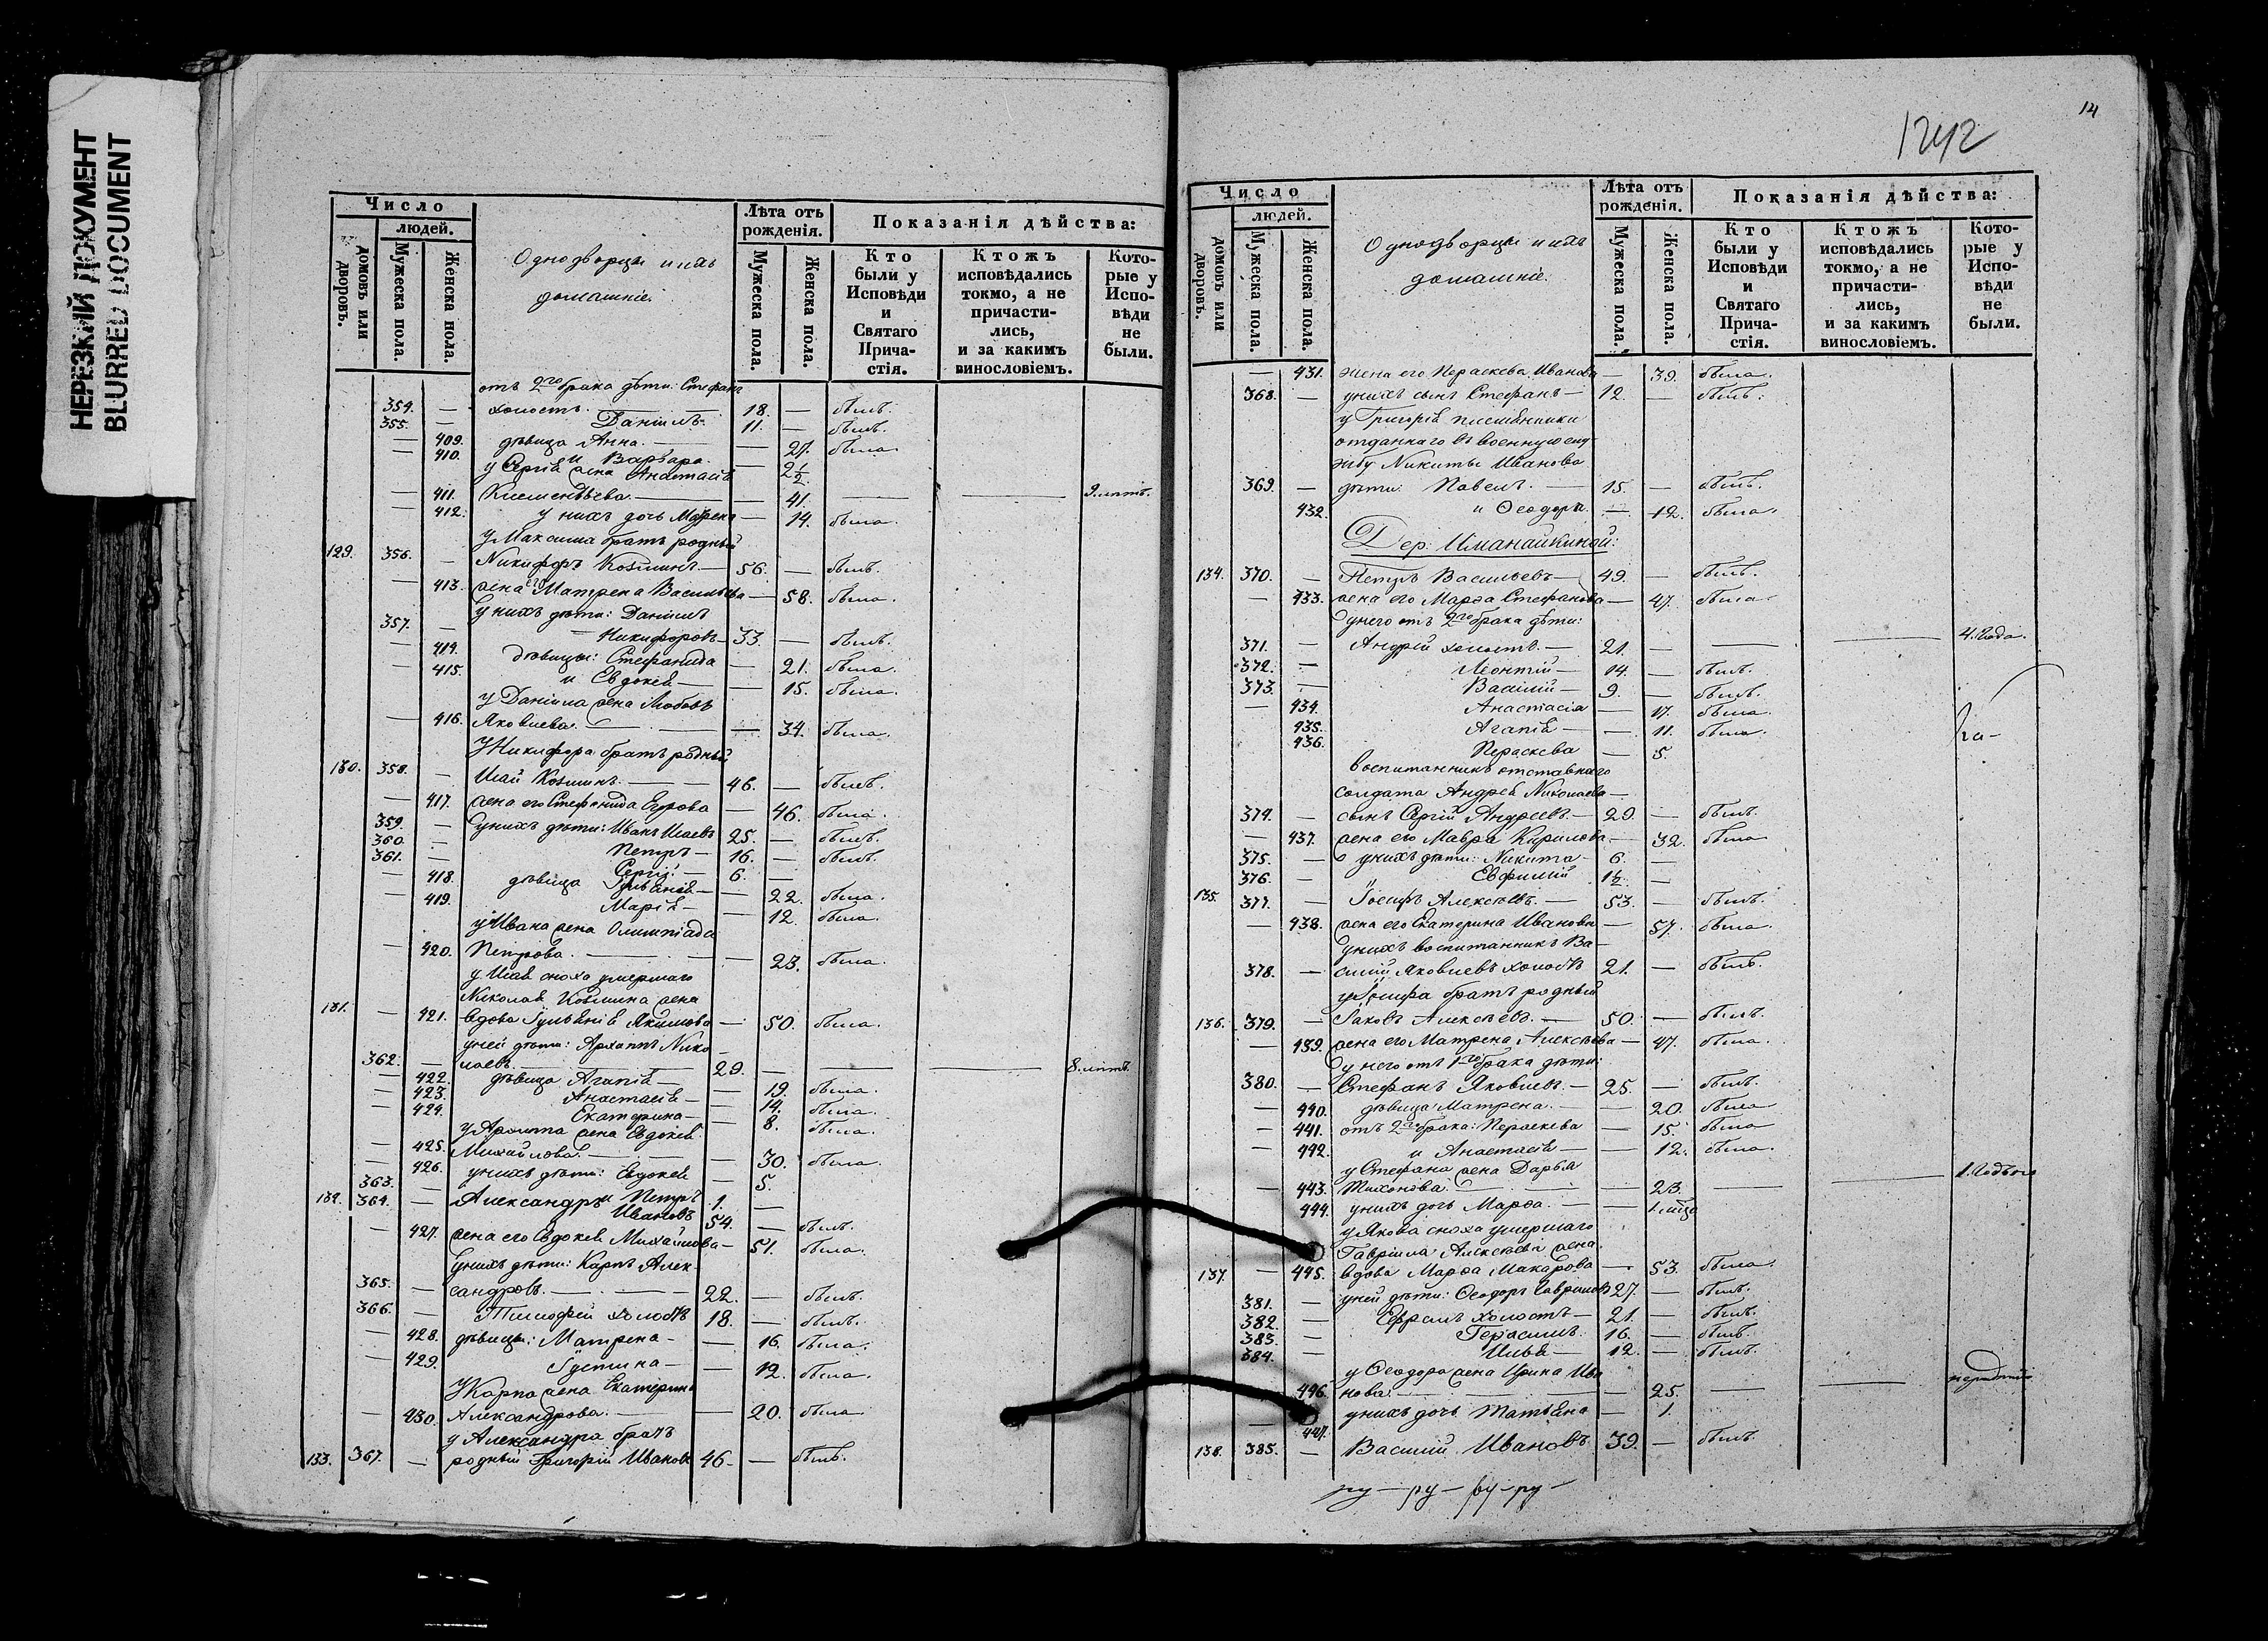 НЕРЕЗКИЙ ДОКУМЕНТ
BLURRED DOCUMENT
Число
людей.
домовъ или дворовъ.
Мужеска пола.
Женска пола.
Однодворцы и ихъ
домашніе.
Лѣта отъ рожденія.
Мужеска пола.
Женска пола.
Показанія дѣйства:
Кто были у Исповѣди и Святаго Причастія.
Ктожъ исповѣдались токмо, а не причастились, и за какимъ винословіемъ.
Которые у Исповѣди не были.
отъ 2го брака дѣти: Стефанъ
354. — холостъ. — 18. — былъ.
355. — Даніилъ — 11. — былъ.
— 409. дѣвица Анна. — — 27. была
— 410. и Варвара. — — 2½
у Сергія жена Анастасія
— 411. Клементьева. — — 41. — — 9. лѣтъ.
— 412. у нихъ дочь Матрена — 14. была.
у Максима братъ родный
129. 356. — Никифоръ Козминъ. — 56. — былъ.
— 413. жена его Матрена Васильева — 58. была.
у нихъ дѣти: Даніилъ
357. — Никифоровъ — 33. — былъ.
— 414. дѣвицы: Стефанида — 21. была.
— 415. и Евдокія — — 15. была.
у Даніила жена Любовь
— 416. Яковлева. — — 34. была.
У Никифора братъ родный
130. 358. — Исай Козминъ. — 46. — былъ.
— 417. жена его Стефанида Егорова — 46. была.
359. — у нихъ дѣти: Иванъ Исаевъ 25. — былъ.
360. — Петръ — 16. — былъ.
361. — Сергій — 6. —
— 418. дѣвица Іуліанія — — 22. была.
— 419. Марія — — 12. была.
у Ивана жена Олимпіада
— 420. Петрова. — — 23. была.
у Исая сноха умершаго
Николая Козмина жена
131. — 421. вдова Іуліанія Якимова — 50. была.
у ней дѣти: Архипъ Нико-
362. — лаевъ. — 29. — — — 8. лѣтъ.
— 422. дѣвица Агапія — — 19. была.
— 423. Анастасія — — 14. была.
— 424. Екатерина — — 8. была.
у Архипа жена Евдокія
— 425. Михайлова. — — 30. была.
— 426. у нихъ дѣти: Евдокія — 5.
363. — и Петръ 1. —
132. 364. — Александръ Ивановъ 54. — былъ.
— 427. жена его Евдокія Михайлова — 51. была.
у нихъ дѣти: Карпъ Алек-
365. — сандровъ. — 22. — былъ.
366. — Тимофей холостъ 18. — былъ.
— 428. дѣвицы: Матрена — — 16. была.
— 429. Іустина — — 12. была.
У Карпа жена Екатерина
— 430. Александрова. — — 20. была
у Александра братъ
133. 367. — родный Григорій Ивановъ 46 — — былъ.
14
1242
Число
людей.
домовъ или дворовъ.
Мужеска пола.
Женска пола.
Однодворцы и ихъ
домашніе.
Лѣта отъ рожденія.
Мужеска пола.
Женска пола.
Показанія дѣйства:
Кто были у Исповѣди и Святаго Причастія.
Ктожъ исповѣдались токмо, а не причастились, и за какимъ винословіемъ.
Которые у Исповѣди не были.
— 431. жена его Пераскева Иванова — 39. была.
368. — у нихъ сынъ Стефанъ — 12. — былъ.
у Григорія племянники
отданнаго въ военную слу-
жбу Никиты Иванова
369. — дѣти: Павелъ. — 15. — былъ.
432. и Ѳеодора. — — 12. была.
Дер: Иманайкиной:
134. 370. — Петръ Васильевъ — 49. — былъ.
— 433. жена его Марѳа Стефанова — 47. была
у него отъ 2го брака дѣти:
371. — Андрей холостъ. — 21. — — — 4. Года.
372. — Леонтій — 14. — былъ.
373. — Василій — 9. — былъ.
— 434. Анастасія — 17. была.
435. Агапія — — 11. была.
436. Пераскева — 5.
воспитанникъ отставнаго
солдата Андрея Николаева —
374. — сынъ Сергій Андреевъ. — 29. — былъ.
— 437. жена его Мавра Кирилова — 32. была
375. — у нихъ дѣти: Никита — 6. —
376. — Евфимій 1½. —
135. 377. — Іосифъ Алексѣевъ. — 53. — былъ.
— 438. жена его Екатерина Иванова — 57. была.
у нихъ воспитанникъ Ва-
378. — силій Яковлевъ холостъ 21. — былъ.
у Іосифа братъ родный
136. 379. — Іаковъ Алексѣевъ. — 50. — былъ.
— 439. жена его Матрена Алексѣева — 47. была.
у него отъ 1го брака дѣти:
380. — Стефанъ Яковлевъ. — 25. — былъ.
— 440. дѣвица Матрена. — — 20. была
— 441. отъ 2го брака: Пераскева — 15. была
— 442. и Анастасія — — 12. была.
у Стефана жена Дарья
— 443. Тихонова. — — 23. — — 1. Годъ
444. у нихъ дочь Марѳа. — —
у Якова сноха умершаго
Гавріила Алексѣева жена
137. — 445. вдова Марѳа Макарова — 53. была.
381. — у ней дѣти: Ѳеодоръ Гавриловъ 27. — былъ.
382. — Ефремъ холостъ — 21. — былъ.
383. — Герасимъ. 16. — былъ.
384. — Илья — 12. — былъ.
у Ѳеодора жена Ирина Ива-
446. нова. — — 25. — —
447. у нихъ дочь Татьяна — 1.
138. 385. — Василій Ивановъ 39. — былъ.